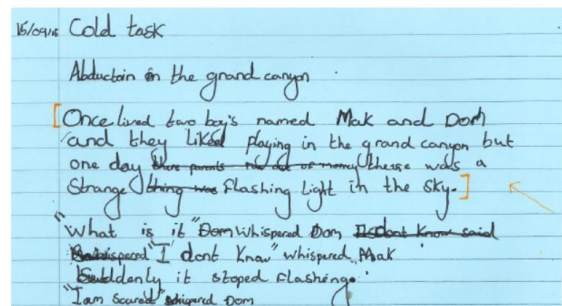 15/09/15 Cold task
Abductoin in the grand canyon
[Once lived two boy's named Mak and Dom
and they liked playing in the grand canyon but
one day there parents had out of money theere was a
Strange thing was flashing light in the sky.]
"What is it "Dom whispered Dom dont know said
"I dont know" whispered Mak
Suddenly it stoped flashing.
"I am scared" whispered Dom